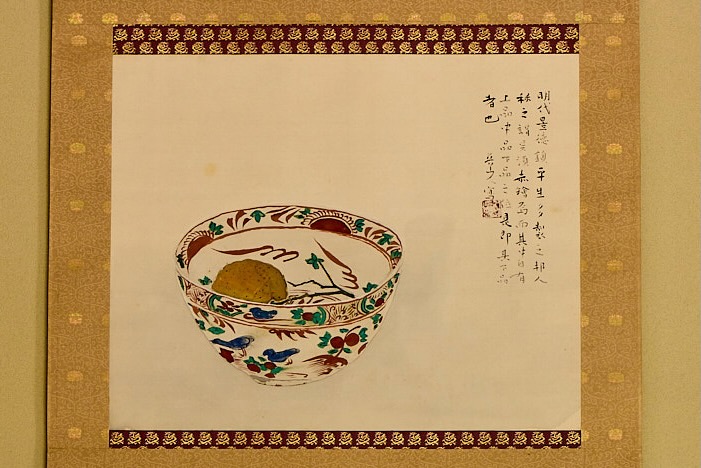 明代景德鎮平生多製之邦人
秘之謂呉須赤繪而而其中自有
上品中品下品之 是即其下品
者也